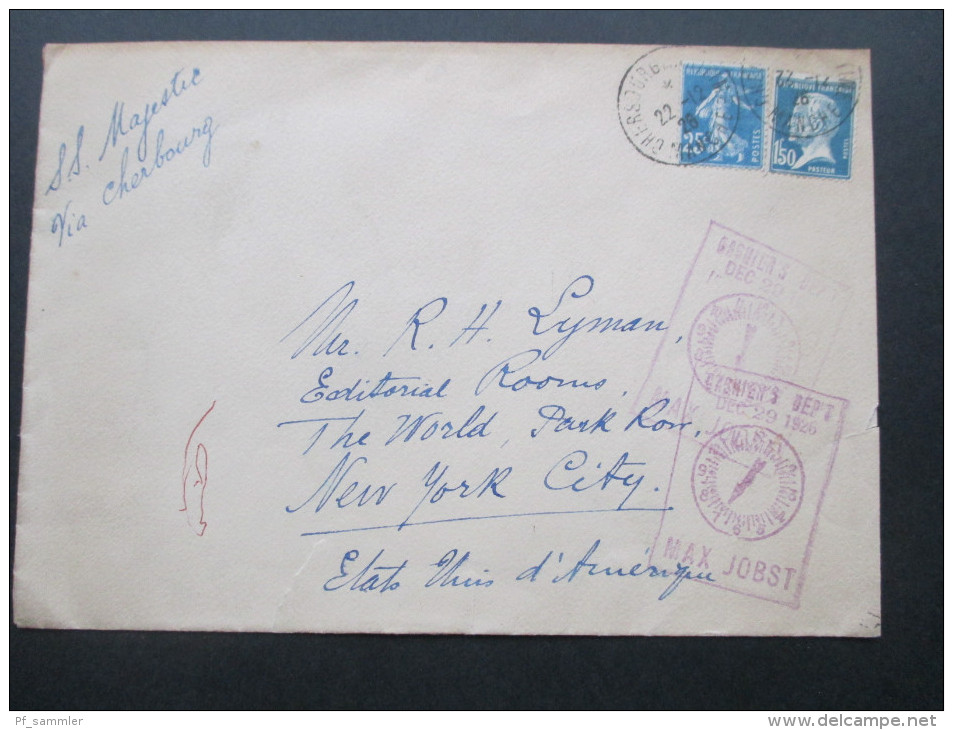 S.S. Majestic
Via Cherbourg
22 - 12
26
REPUBLIQUE FRANÇAISE
25
POSTES
22 - 12
26
REPUBLIQUE FRANÇAISE
1F50
POSTES
PASTEUR
CASHIER'S DEP'T
DEC 29
MAX JO
CASHIER'S DEP'T
DEC 29 1926
MAX JOBST
Mr. R. H. Lyman,
Editorial Rooms,
The World, Park Row,
New York City.
Etats Unis d'Amérique
Pf_sammler
www.delcampe.net